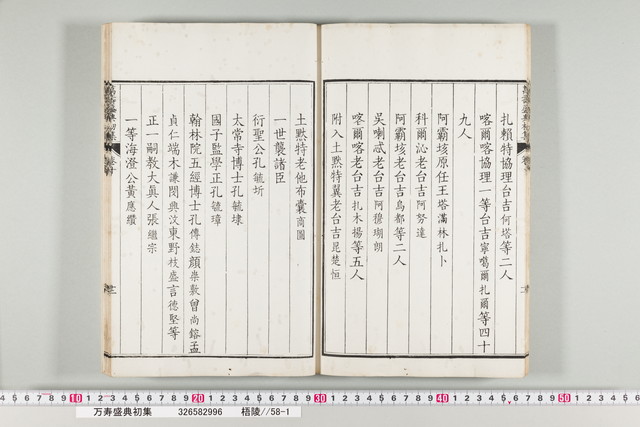 扎賴特協理台吉何塔等二人
喀爾喀協理一等台吉寧噶爾扎爾等四十
九人
阿霸垓原任王塔滿林扎卜
科爾沁老台吉阿努達
阿霸垓老台吉烏都等二人
吳喇忒老台吉阿穆瑚朗
喀爾喀老台吉扎木楊等五人
附入土默特翼老台吉昆楚恒
土默特老他布囊商圖
一世襲諸臣
衍聖公孔毓圻
太常寺博士孔毓埭
國子監學正孔毓璋
翰林院五經博士孔傳鋕顏崇敷曾尚鎔孟
貞仁端木謙閔興汶東野枝盛言德堅等
正一嗣教大真人張繼宗
一等海澄公黃應纘
10 20 30 40 50
万寿盛典初集 326582996 梧陵//58-1